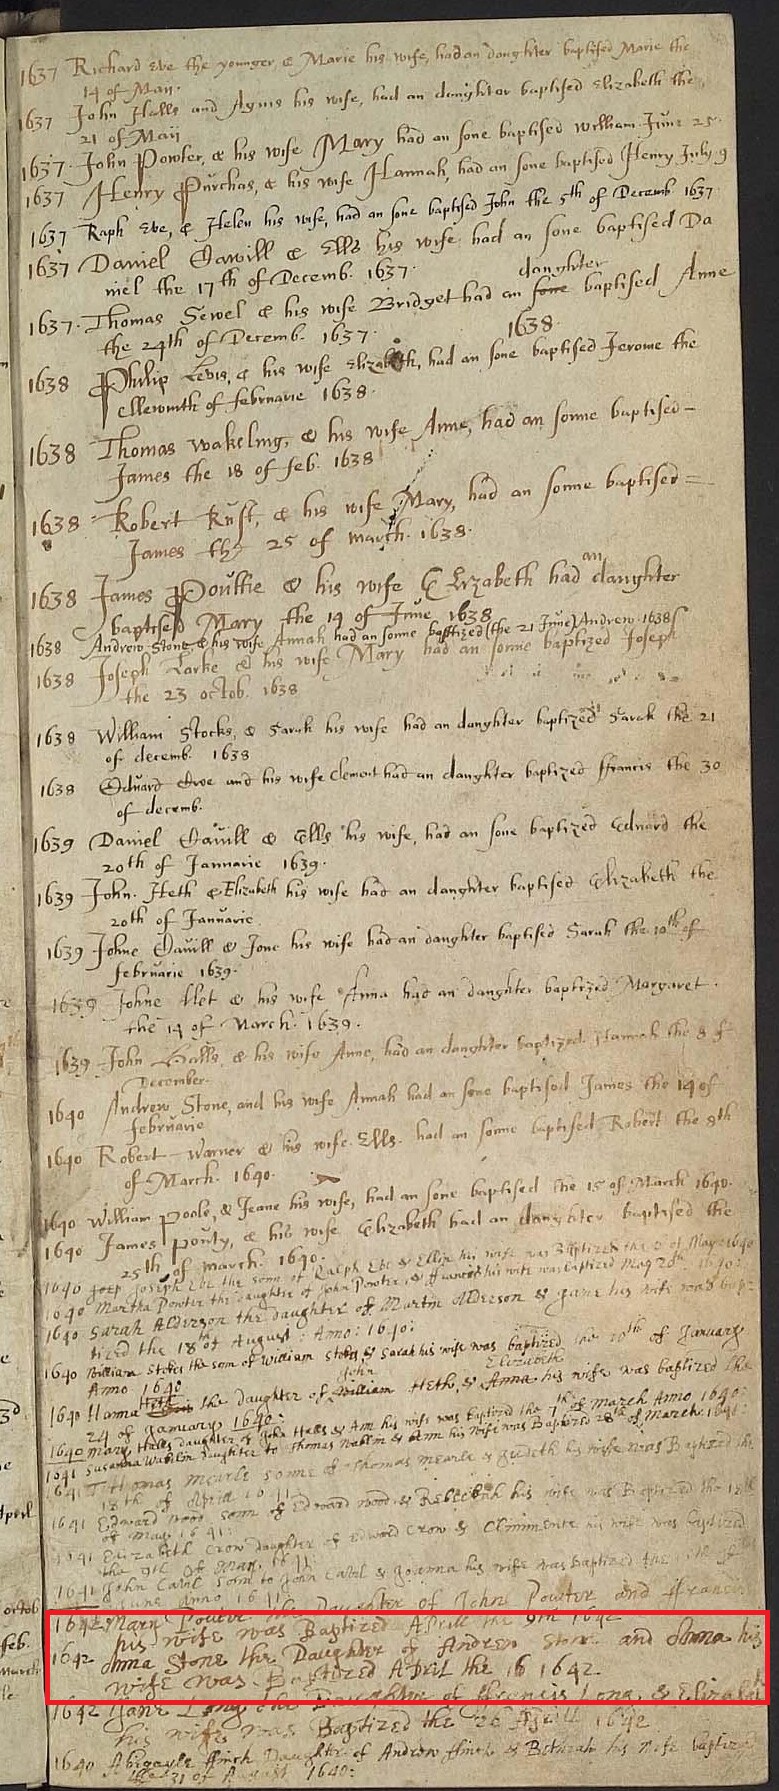 1637 Richard Eve the younger, & Marie his wife, had an daughter baptised Marie the
14 of Maij.
1637 John Halls and Agnis his wife, had an daughter baptised Elizabeth the
21 of Maij
1637. John Powter, & his wife Mary had an sone baptised William. June 25.
1637 Henry Purchas, & his wife Hannah, had an sone baptised Henry July 9
1637 Raph Eve, & Helen his wife, had an sone baptised John the 5th of Decemb 1637.
1637 Daniel & Ells his wife had an sone baptised Da
niel the 17th of Decemb. 1637.
daughter
1637. Thomas Sewel & his wife Bridget had an sone baptised Anne
the 24th of Decemb. 1637.
1638.
1638 Philip Levis, & his wife Elizabeth, had an sone baptised Jerome the
ellewinth of februarie 1638.
1638 Thomas Wakeling, & his wife Anne, had an sonne baptised –
James the 18 of feb. 1638
1638 Robert Kust, & his wife Mary, had an sonne baptised =
James the 25 of march. 1638.
an
1638 James Poultie & his wife Elizabeth had daughter
baptised Mary the 14 of June 1638
1638 Andrew Stone & his wife Annah had an sonne baptized (the 21 June) Andrew 1638
1638 Joseph Larke & his wife Mary had an sonne baptized Joseph
the 23 octob. 1638
1638 William Stocks, & Sarah his wife had an daughter baptized Sarah the 21
of decemb 1638
1638 Eduard and his wife Clement had an daughter baptized ffrancis the 30
of decemb.
1639 Daniel & Ells his wife, had an sone baptized Eduard the
20th of Januarie 1639.
1639 John. Heth & Elizabeth his wife had an daughter baptised Elizabeth the
20th of Januarie
1639 Johne & Jone his wife had an daughter baptised Sarah the 10th of
februarie 1639.
1639 Johne & his wife Anna had an daughter baptized Margaret.
the 14 of March. 1639.
1639 John Halls, & his wife Anne, had an daughter baptized. Hannah the 8 of
December.
1640 Andrew Stone, and his wife Annah had an sone baptised James the 14 of
februarie
1640 Robert Warner & his wife. Ells. had an sonne baptised Robert the 8th
of March. 1640.
1640 William Poole, & Jeane his wife, had an sone baptised the 15 of March 1640.
1640 James Pouty, & his wife Elizabeth had an daughter baptised the
25th of march. 1640.
1640 Joseph Eve the sonn of Ralph Eve & Ellin his wife was Baptized the of May 1640
1640 Martha Powter the daughter of John Powter, & ffrancis his wife was baptized May 20th 1640:
1640 Sarah Alderson the daughter of Martin Alderson & Jane his wife was bap=
tized the 18th of August: Anno: 1640:
1640 William Stokes the son of William Stokes & Sarah his wife was baptized the 10th of January
Anno 1640
John Elizabeth
1640 Hanna Heth the daughter of William Heth, & Anna his wife was baptized the
24 of January 1640:
1640 Mary Halls daughter of John Halls & Ann his wife was baptized the 7th of March Anno 1640:
1641 Susanna Wablin daughter to Thomas Wablin & Ann his wife was Baptized 28th of March. 1641:
1641 Thomas Mearle sonne of Thomas Mearle & Judeth his wife was Baptized the
18th of Aprill 1641:
1641 Edward Wood sonn of Edward Wood & Rebeckah his wife was Baptized the
of May 1641:
1641 Elizabeth Crow daughter of Edward Crow & Climmence his wife was baptized
the 9th of May. 1641:
1641 John Cavil Sonn to John Cavil & Joanna his wife was baptized the of
June Anno 1641:
1642 Mary Powter the Daughter of John Powter and ffrancis
his wife was Baptized Aprill the 9th 1642
1642 Anna Stone the Daughter of Andrew Stone and Anna his
wife was Baptized Aprill the 16 1642.
1642 Jane Long the Daughter of ffrancis Long, & Elizabeth
his wife was Baptized the 26 Aprill 1642
1640 Abigayle ffinch Daughter of Andrew ffinch & Bethiah his Wife baptized
the 31 of August 1640: